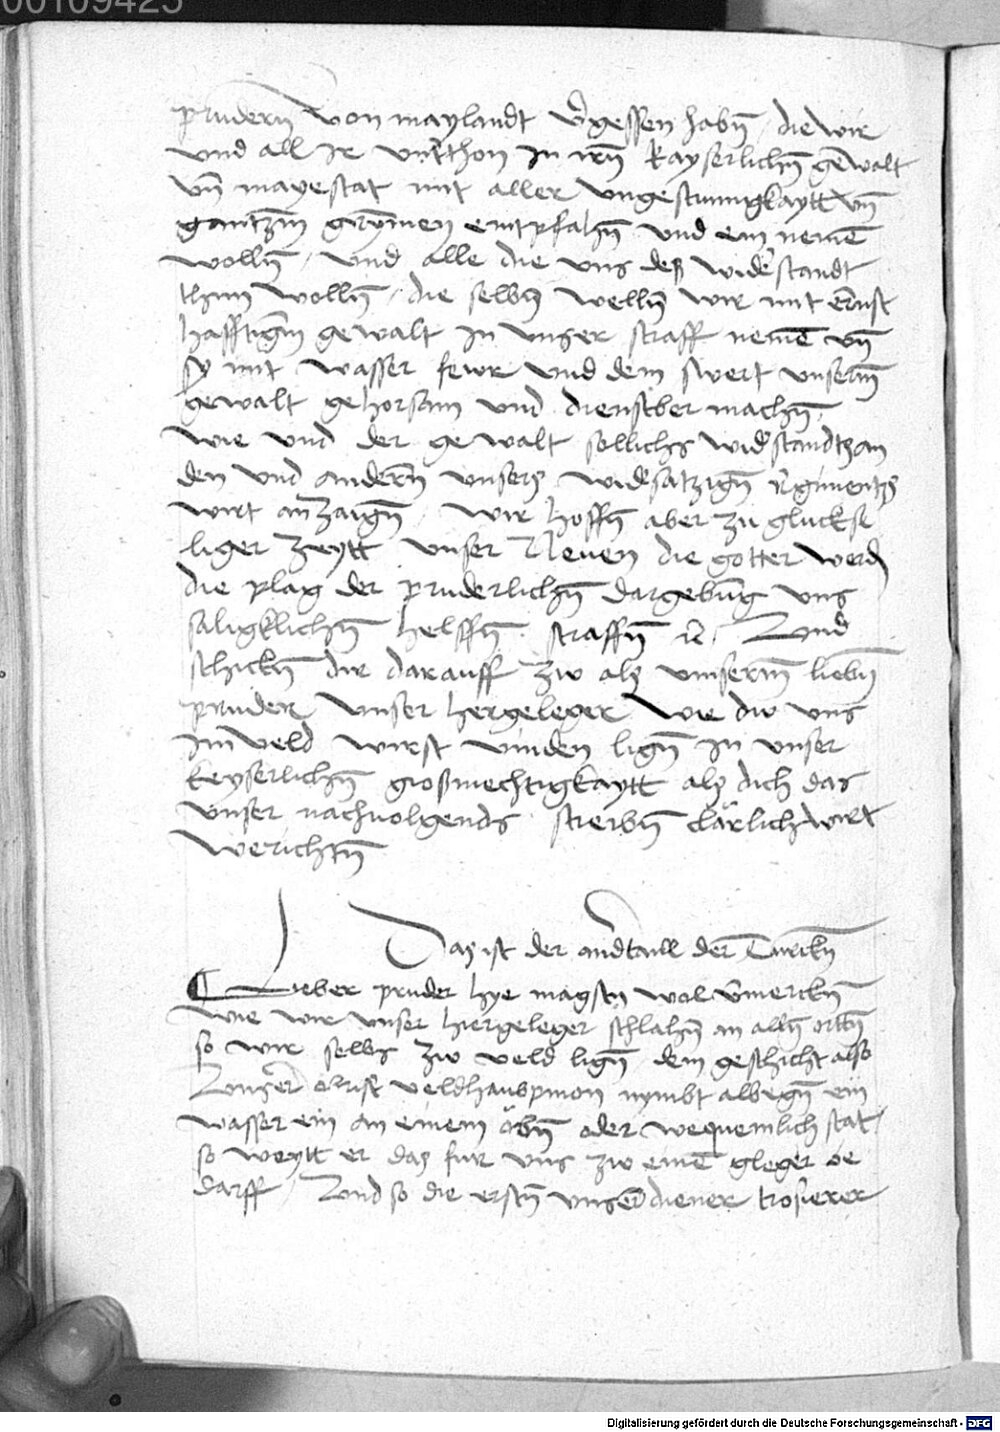 00109425
prudern von maylandt v̄gessen habn̄ / die wir
vnd all Ir vnt̄thon In irn̄ kayserlichn̄ gewalt
vn̄ mayestat mit aller vngestumigkaytt vn̄
gantzm̄ grȳmen emtpfahn̄ vnd ein nemē
wolln̄ / vnd alle die vns des widerstandt
thun wolln̄ / die selbn̄ welln̄ wir mit ernst
hafftigm̄ gewalt In vnser straff nemē vn̄
sy mit wasser fewr vnd dem swert vnserm̄
gewalt gehorsam vnd dienstber machn̄
wie vnd der gewalt sollichs widerstandthan
den vnd andern̄ vnsers widersatzign̄ regiments
wirt anzaign̄ / wir hoffn̄ aber zu gluckse
liger zeytt vnser Neuen die gotter werdn̄
die plag der pruderlichn̄ dargebung vns
saligklichn̄ helffn̄ straffn̄ Vnd
schickn̄ dir darauff zw als vnserm̄ liebn̄
pruder vnser hergeleger wie dw vns
Im veld wirst vinden lign̄ In vnser
keyserlichn̄ großmechtigkaytt als dich das
vnser nachuolgends screibn̄ clärlich wirt
werichtn̄
Das ist der andtaill der Turckn̄
Lieber pruder hye magstu wol v̄merckn̄
wie wir vnser hergeleger schlahn̄ an alln̄ ortn̄
so wir selbs zw veld lign̄ dem geschicht also
Vnser obrist veldhaubpmon nymbt albegn̄ ein
wasser ein an einem ebn̄ oder wequemlich stat
so weytt er das fur vns zw einē gleger be
darff / Vnd so die erstn̄ vnser diener trosierer
Digitalisierung gefördert durch die Deutsche Forschungsgemeinschaft - DFG